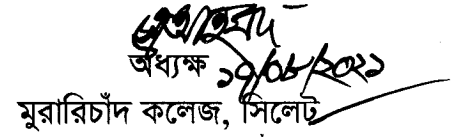 অধ্যক্ষ ১৭/০৮/২০২১
মুরারিচাঁদ কলেজ, সিলেট